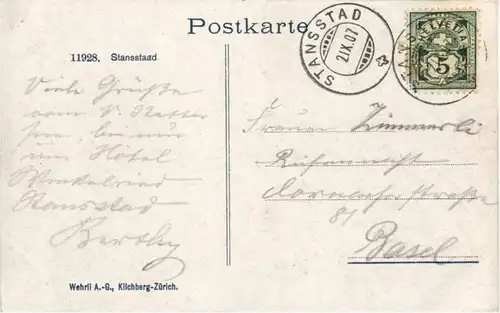 Postkarte
11928. Stansstaad
STANSSTAD
2.IX.07
HELVETIA
5
Viele Grüße
vom V.
bin nun
im Hôtel
Winkelried
Stansstad
Berthy
Frauen Zimmerli
Dornacherstraße
81
Basel
Wehrli A.-G., Kilchberg-Zürich.